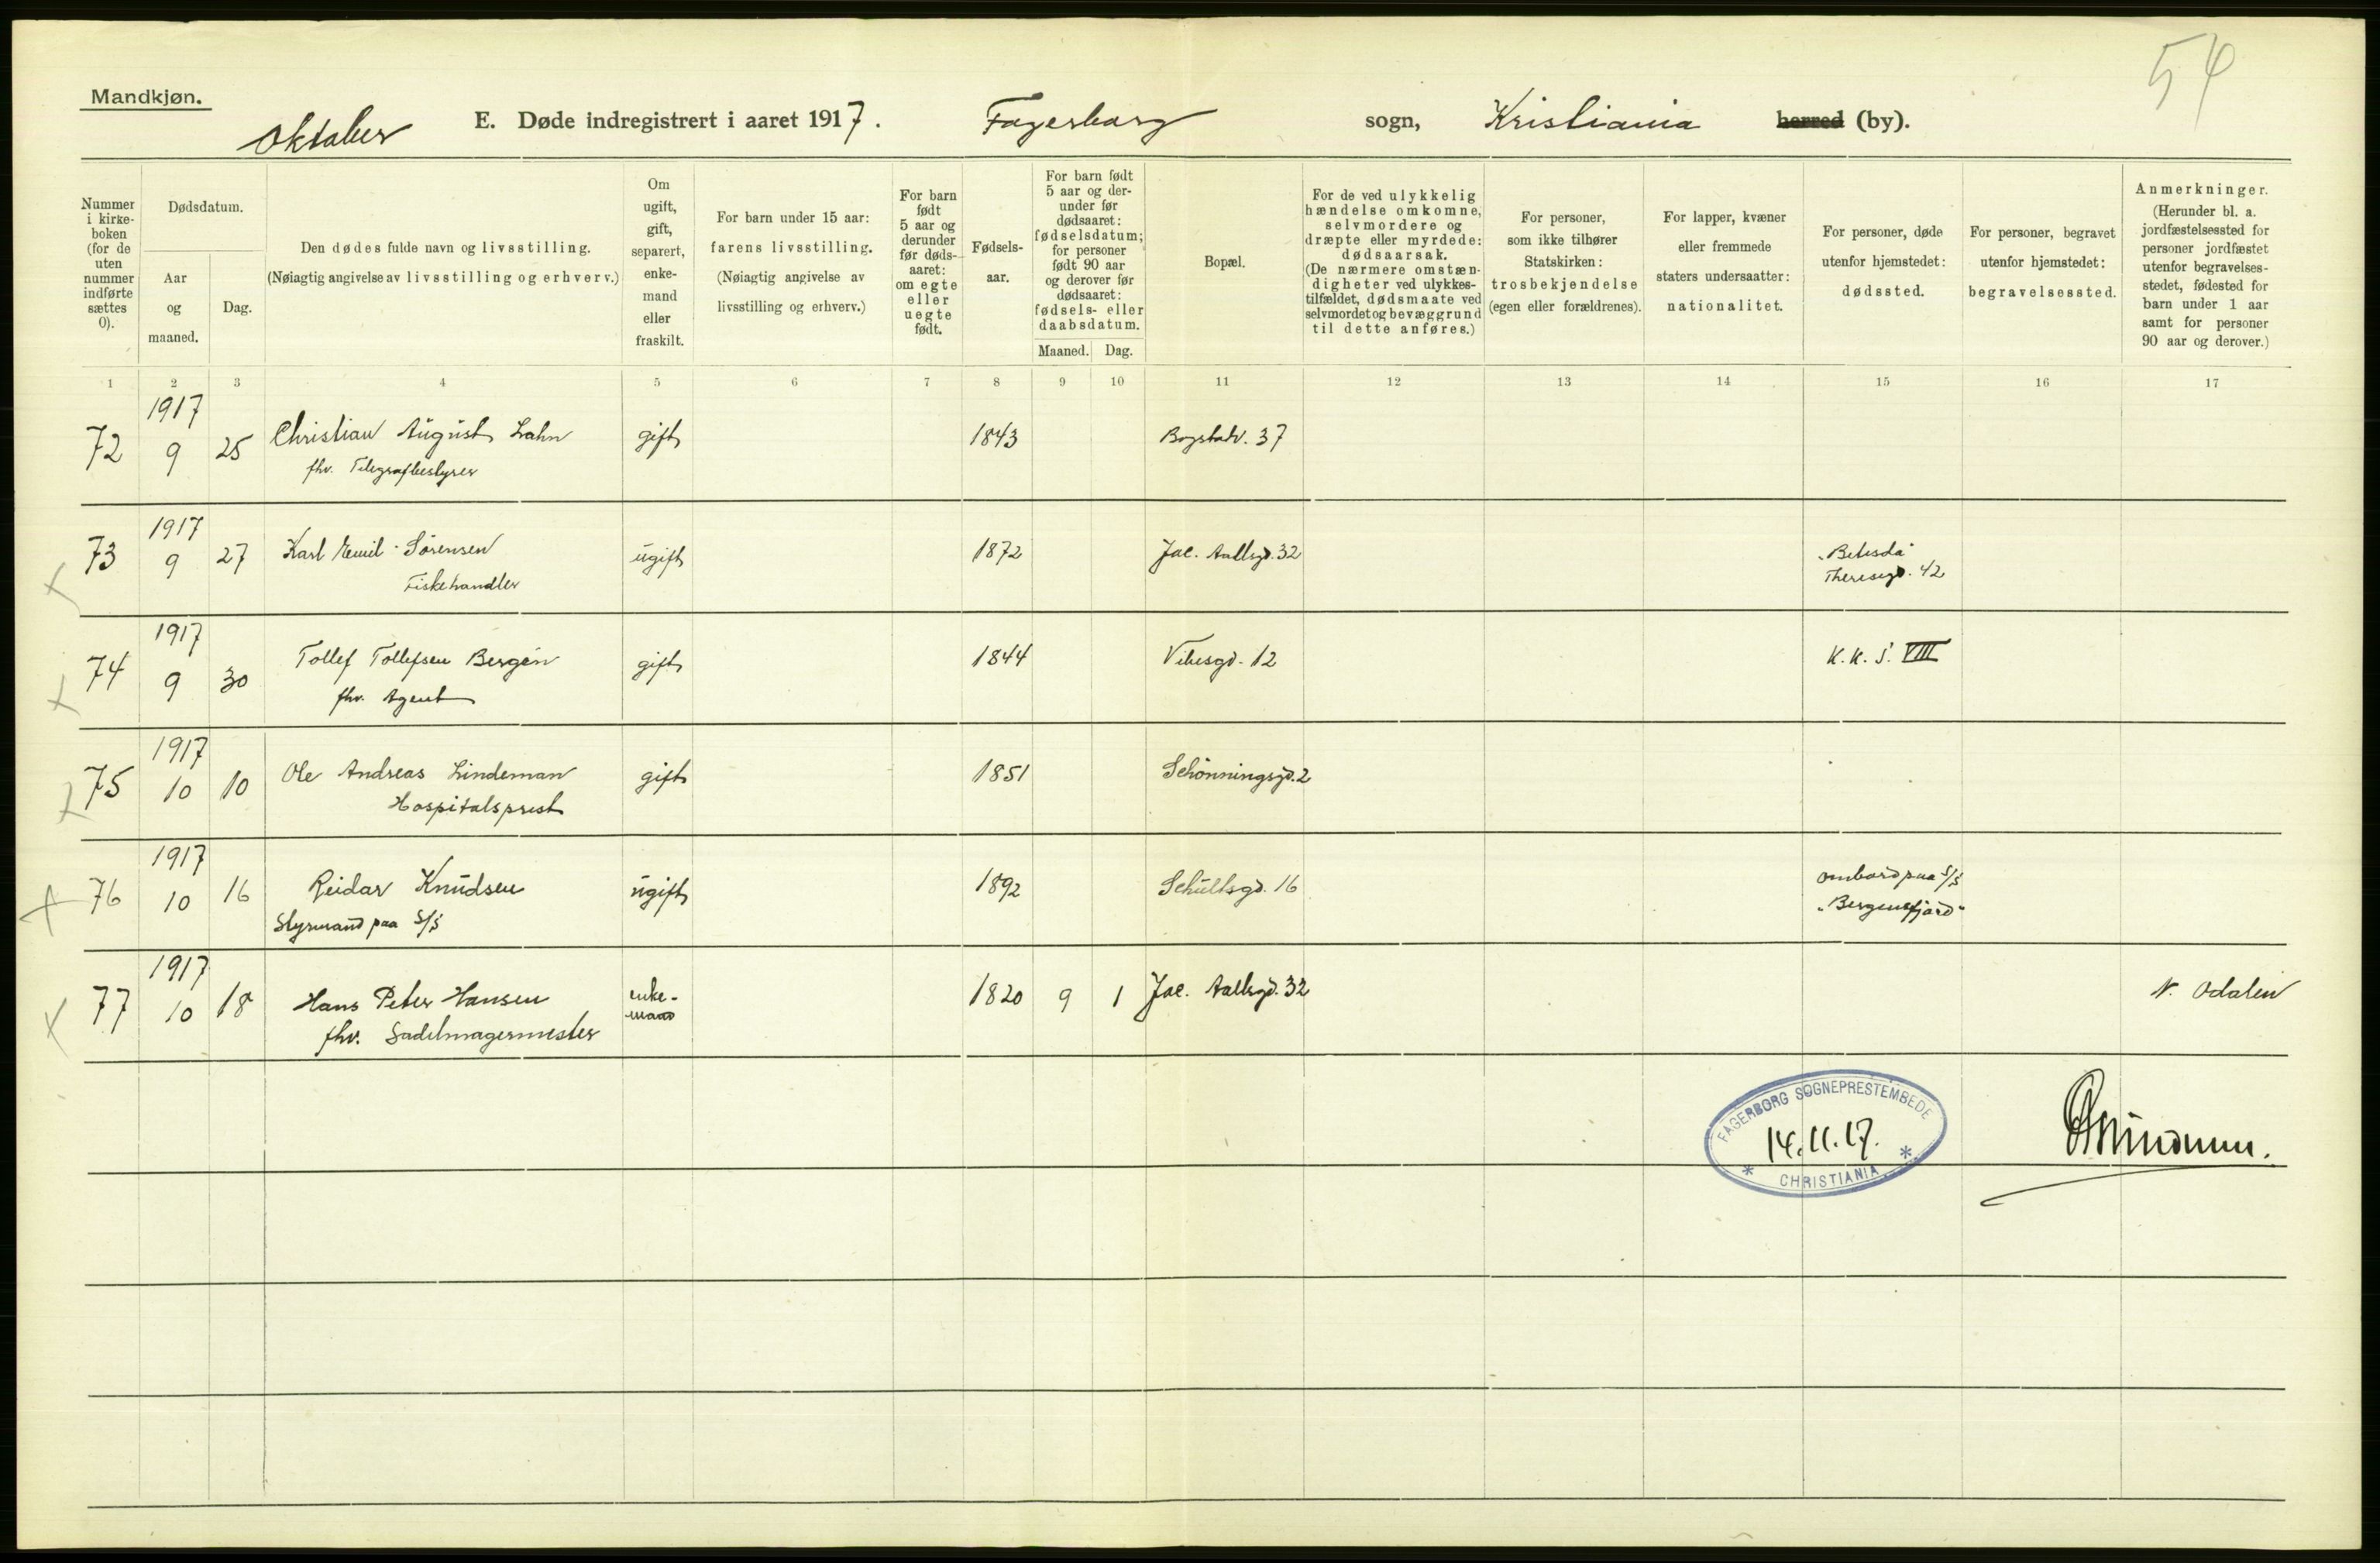 54
Mandkjøn.
Oktober E. Døde indregistrert i aaret 1917. Fagerborg sogn, Kristiania herred (by).
Nummer i kirkeboken (for de uten nummer indførte sættes 0).
Dødsdatum.
Aar og maaned.
Dag.
Den dødes fulde navn og livsstilling.
(Nøiagtig angivelse av livsstilling og erhverv.)
Om ugift, gift, separert, enkemand eller fraskilt.
For barn under 15 aar:
farens livsstilling.
(Nøiagtig angivelse av livsstilling og erhverv.)
For barn født 5 aar og derunder før dødsaaret: om egte eller uegte født.
Fødselsaar.
For barn født 5 aar og derunder før dødsaaret: fødselsdatum; for personer født 90 aar og derover før dødsaaret: fødsels- eller daabsdatum.
Maaned. Dag.
Bopæl.
For de ved ulykkelig hændelse omkomne, selvmordere og dræpte eller myrdede: dødsaarsak.
(De nærmere omstændigheter ved ulykkestilfældet, dødsmaate ved selvmordet og bevæggrund til dette anføres.)
For personer, som ikke tilhører Statskirken: trosbekjendelse (egen eller forældrenes).
For lapper, kvæner eller fremmede staters undersaatter: nationalitet.
For personer, døde utenfor hjemstedet: dødssted.
For personer, begravet utenfor hjemstedet: begravelsessted.
Anmerkninger.
(Herunder bl. a. jordfæstelsessted for personer jordfæstet utenfor begravelsesstedet, fødested for barn under 1 aar samt for personer 90 aar og derover.)
1 2 3 4 5 6 7 8 9 10 11 12 13 14 15 16 17
1917
72 9 25 Christian August Lahn gift 1843 Bogstadv. 37
fhv. Telegrafbestyrer
1917
73 9 27 Karl Emil Sørensen ugift 1872 Jac. Aallsgd. 32 "Betesda"
Fiskehandler Theresegd. 42
1917
74 9 30 Tollef Tollefsen Bergén gift 1844 Vibesgd. 12 K. K. S. VIII
fhv. Agent
1917
75 10 10 Ole Andreas Lindeman gift 1851 Schønningsgd. 2
Hospitalsprest
1917
76 10 16 Reidar Knudsen ugift 1892 Schultsgd. 16 ombord paa S/S
Styrmand paa S/S "Bergensfjord"
1917
77 10 18 Hans Peter Hansen enkemand 1820 9 1 Jac. Aallsgd. 32 N. Odalen
fhv. Sadelmagermester
FAGERBORG SOGNEPRESTEMBEDE
14.11.17.
* CHRISTIANIA *